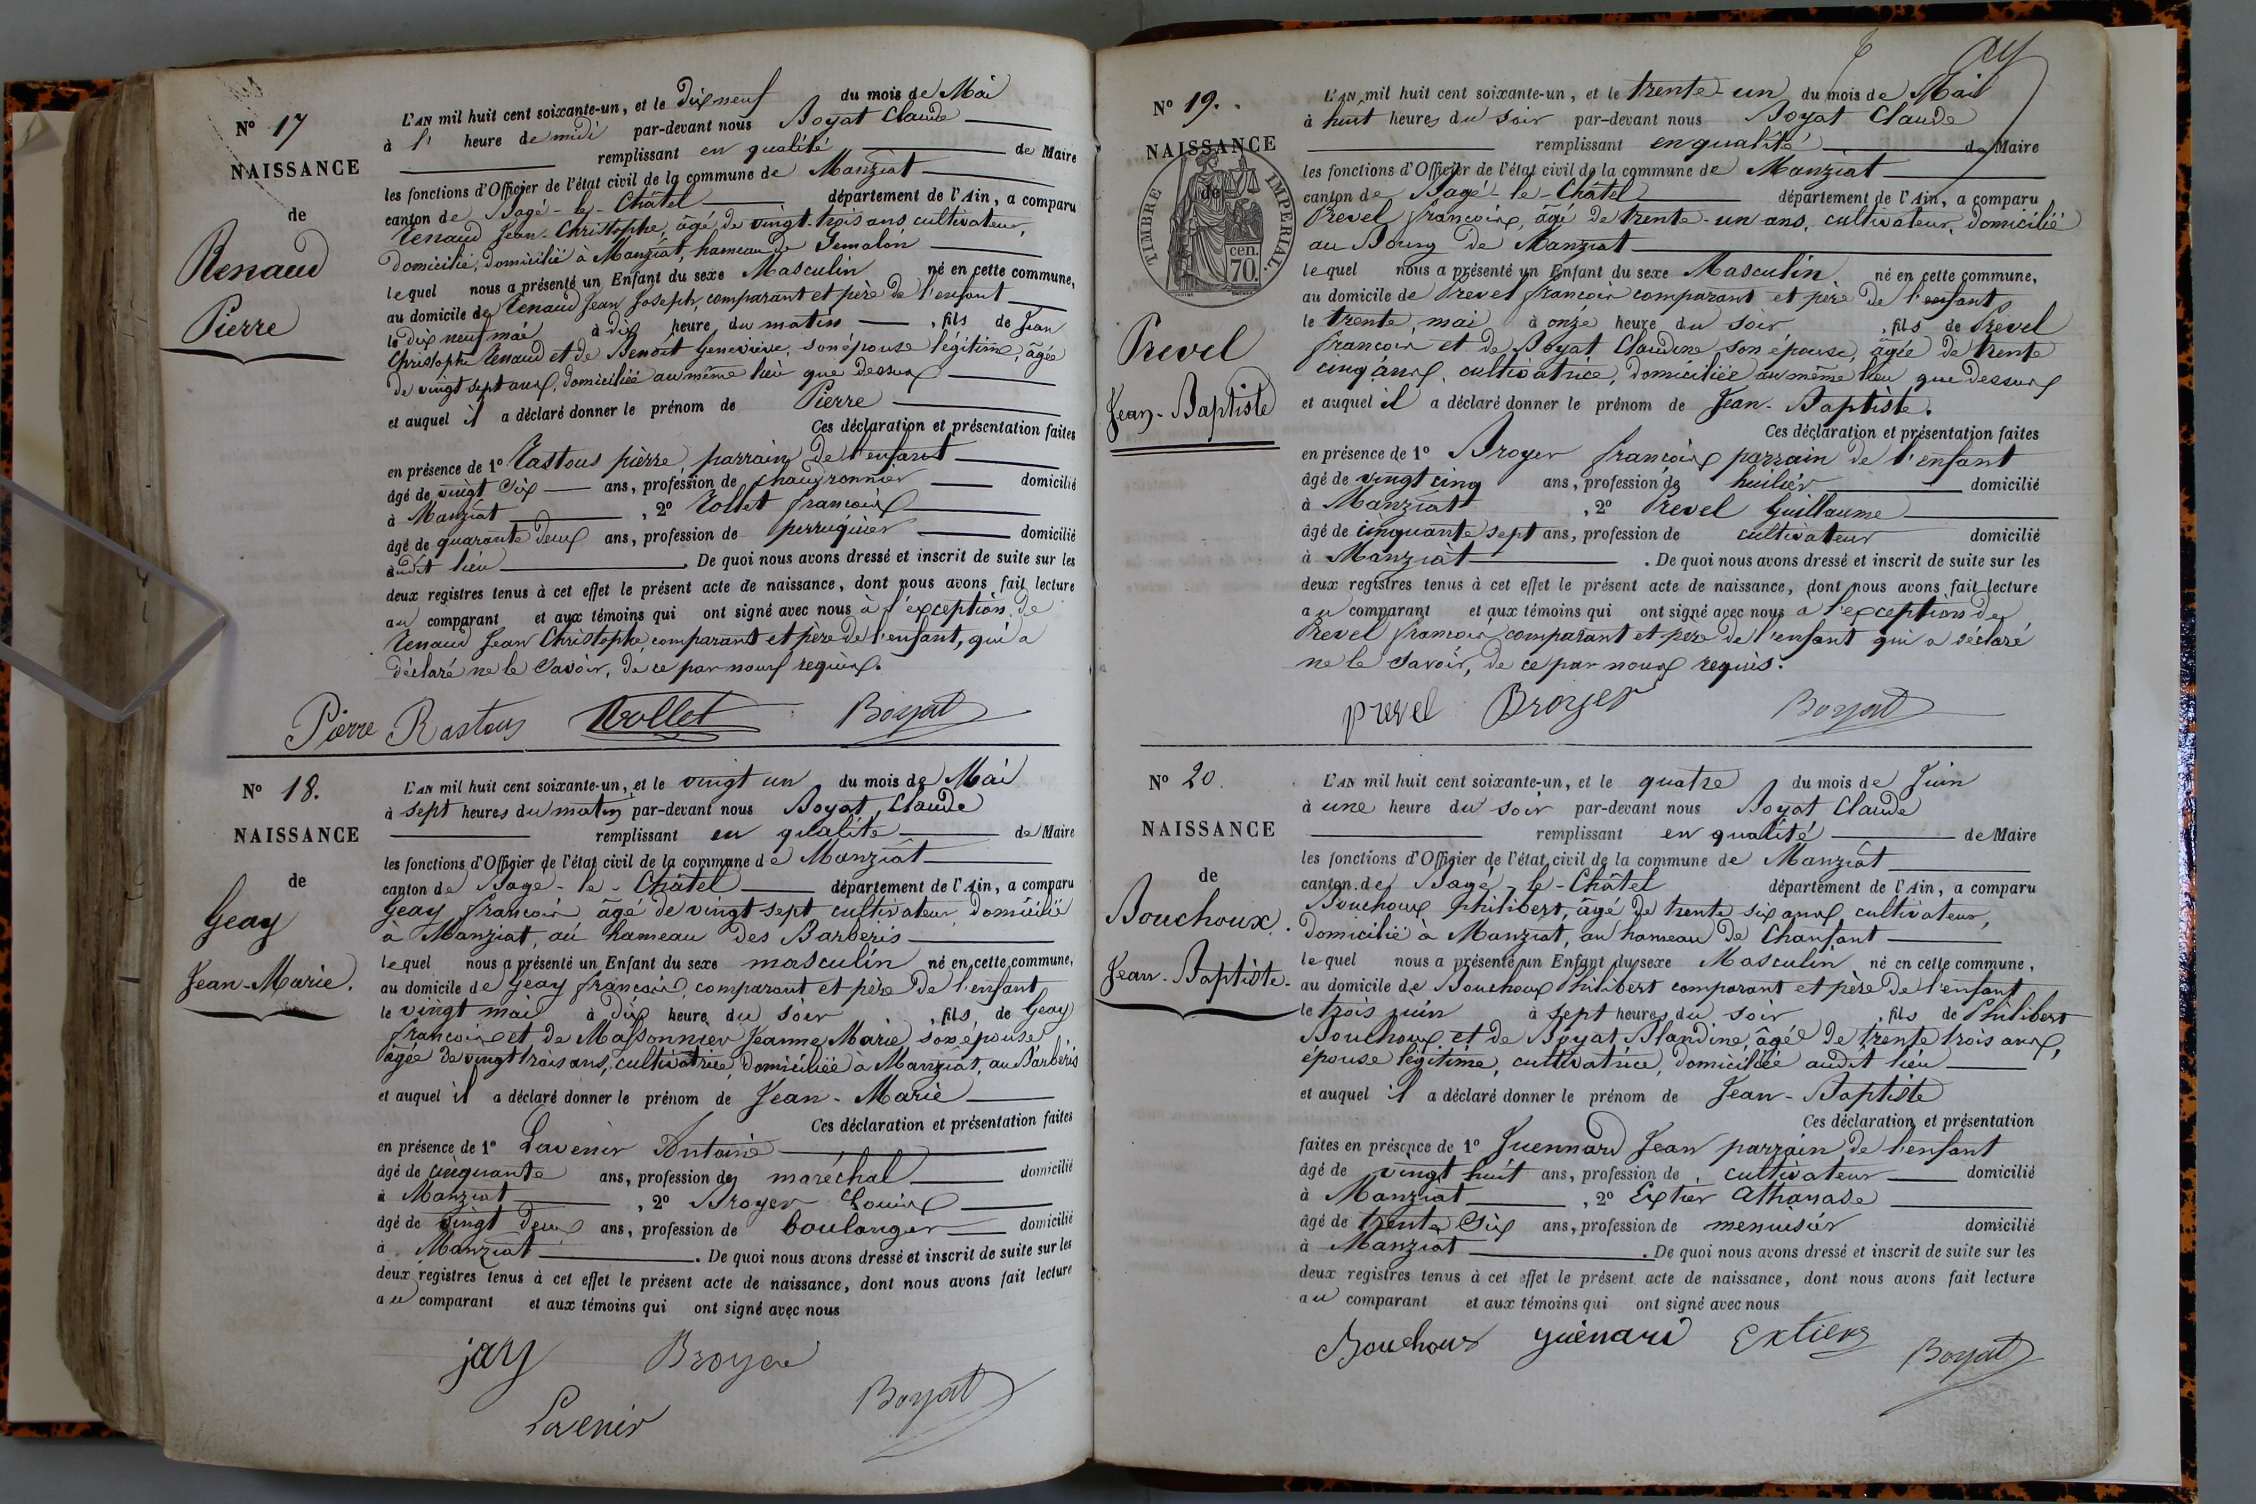 N° 17
NAISSANCE
de
Renaud
Pierre
L'AN mil huit cent soixante-un, et le dix neuf du mois de Mai
à l' heure de midi par-devant nous Boyat Claude
remplissant en qualité de Maire
les fonctions d'Officier de l'état civil de la commune de Manziat
canton de Bagé-le-Châtel département de l'Ain, a comparu
Renaud Jean-Christophe, âgé de vingt-trois ans cultivateur,
domicilié, domicilié à Manziat, hameau de Semalon
lequel nous a présenté un Enfant du sexe Masculin né en cette commune,
au domicile de Renaud Jean Joseph, comparant et père de l'enfant
le dix neuf mai à dix heure du matin, fils de Jean
Christophe Renaud et de Benoit Geneviève, son épouse légitime, âgée
de vingt sept ans, domiciliée au même lieu que dessus
et auquel il a déclaré donner le prénom de Pierre
Ces déclaration et présentation faites
en présence de 1° Rastous pierre, parrain de l'enfant
âgé de vingt six ans, profession de chaudronnier domicilié
à Manziat, 2° Rollet françois
âgé de quarante deux ans, profession de perruquier domicilié
audit lieu. De quoi nous avons dressé et inscrit de suite sur les
deux registres tenus à cet effet le présent acte de naissance, dont nous avons fait lecture
au comparant et aux témoins qui ont signé avec nous à l'exception de
Renaud Jean Christophe, comparant et père de l'enfant, qui a
déclaré ne le savoir, de ce par nous requis.
Pierre Rastous Rollet Boyat
N° 18.
NAISSANCE
de
Geay
Jean-Marie.
L'AN mil huit cent soixante-un, et le vingt un du mois de Mai
à sept heures du matin par-devant nous Boyat, Claude
remplissant en qualité de Maire
les fonctions d'Officier de l'état civil de la commune de Manziat
canton de Bagé-le-Châtel département de l'Ain, a comparu
Geay françois âgé de vingt sept cultivateur domicilié
à Manziat, au hameau des Barberis
lequel nous a présenté un Enfant du sexe masculin né en cette commune,
au domicile de Geay françois, comparant et père de l'enfant
le vingt mai à dix heure du soir, fils de Geay
françois et de Massonnier Jeanne Marie, son épouse
âgée de vingt trois ans, cultivatrice, domiciliée à Manziat, au Barberis
et auquel il a déclaré donner le prénom de Jean-Marie
Ces déclaration et présentation faites
en présence de 1° Lavenir Antoine
âgé de cinquante ans, profession de maréchal domicilié
à Manziat, 2° Broyer Louis
âgé de vingt deux ans, profession de boulanger domicilié
à Manziat. De quoi nous avons dressé et inscrit de suite sur les
deux registres tenus à cet effet le présent acte de naissance, dont nous avons fait lecture
au comparant et aux témoins qui ont signé avec nous
jay Broyer
Lavenir Boyat
N° 19.
NAISSANCE
de
TIMBRE IMPERIAL.
cen. 70
Prevel
Jean-Baptiste
L'AN mil huit cent soixante-un, et le trente-un du mois de Mai
à huit heures du soir par-devant nous Boyat Claude
remplissant en qualité de Maire
les fonctions d'Officier de l'état civil de la commune de Manziat
canton de Bagé-le-Châtel département de l'Ain, a comparu
Prevel françois, âgé de trente-un ans, cultivateur, domicilié
au Bourg de Manziat
lequel nous a présenté un Enfant du sexe Masculin né en cette commune,
au domicile de Prevel françois comparant et père de l'enfant
le trente mai à onze heure du soir, fils de Prevel
françois et de Boyat Claudine son épouse, âgée de trente
cinq ans, cultivatrice, domiciliée au même lieu que dessus
et auquel il a déclaré donner le prénom de Jean-Baptiste.
Ces déclaration et présentation faites
en présence de 1° Broyer françois parrain de l'enfant
âgé de vingt cinq ans, profession de huilier domicilié
à Manziat, 2° Prevel Guillaume
âgé de cinquante sept ans, profession de cultivateur domicilié
à Manziat. De quoi nous avons dressé et inscrit de suite sur les
deux registres tenus à cet effet le présent acte de naissance, dont nous avons fait lecture
au comparant et aux témoins qui ont signé avec nous à l'exception de
Prevel françois comparant et père de l'enfant qui a déclaré
ne le savoir, de ce par nous requis.
prevel Broyer Boyat
N° 20.
NAISSANCE
de
Bouchoux
Jean-Baptiste
L'AN mil huit cent soixante-un, et le quatre du mois de Juin
à une heure du soir par-devant nous Boyat Claude
remplissant en qualité de Maire
les fonctions d'Officier de l'état civil de la commune de Manziat
canton de Bagé-le-Châtel département de l'Ain, a comparu
Bouchoux Philibert, âgé de trente six ans, cultivateur,
domicilié à Manziat, au hameau de Chanfant
lequel nous a présenté un Enfant du sexe Masculin né en cette commune,
au domicile de Bouchoux Philibert comparant et père de l'enfant
le trois juin à sept heures du soir, fils de Philibert
Bouchoux et de Boyat Blandine, âgée de trente trois ans,
épouse légitime, cultivatrice, domiciliée audit lieu
et auquel il a déclaré donner le prénom de Jean-Baptiste
Ces déclaration et présentation
faites en présence de 1° Guennard Jean parrain de l'enfant
âgé de vingt huit ans, profession de cultivateur domicilié
à Manziat, 2° Extier Athanase
âgé de trente six ans, profession de menuisier domicilié
à Manziat. De quoi nous avons dressé et inscrit de suite sur les
deux registres tenus à cet effet le présent acte de naissance, dont nous avons fait lecture
au comparant et aux témoins qui ont signé avec nous
Bouchoux guénard Extier Boyat